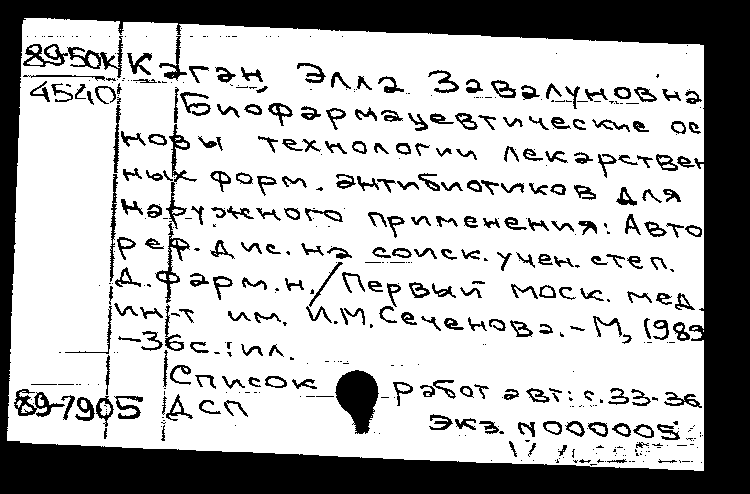 89-50к Каган, Элла Завалуновна
4540 Биофармацевтические ос
новы технологии лекарствен
ных форм. антибиотиков для
наружного применения: Авто
реф. дис. на соиск. учен. степ.
д. фарм. н. / Первый моск. мед.
ин-т им. И.М. Сеченова. - М, 1989
-36с.: ил.
Список работ авт: с. 33-36
89-7905 ДСП
экз. N000005